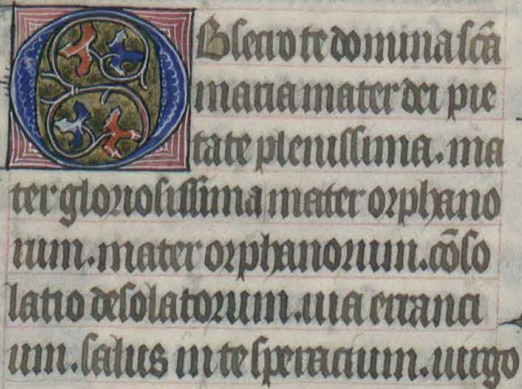 Obsecro te domina scā
maria mater dei pie
tate plenissima. ma
ter gloriosissima mater orphano
rum. mater orphanorum. cōso
latio desolatorum. uia erranti
um. salus in te sperantium. uirgo